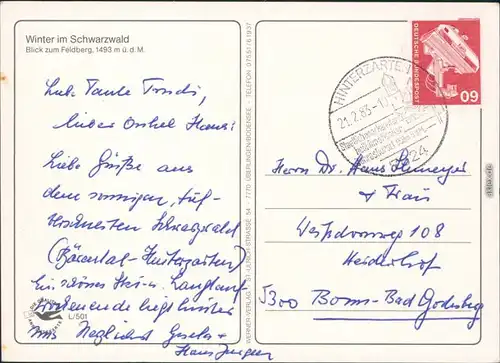 Winter im Schwarzwald
Blick zum Feldberg, 1493 m ü. d. M.
Liebe Tante Trudi,
lieber Onkel Hans!
Liebe Grüße aus
dem sonnigen, tief-
verschneiten Schwarzwald
(Bärental-Hinterzarten)
Ein schönes Ski- u. Langlauf-
wochenende liegt hinter
uns Herzlichst Gisela +
Hans Jürgen
L/501
7770 ÜBERLINGEN/BODENSEE · TELEFON 07551/6 1937
HINTERZARTEN
21.2.83
7824
DEUTSCHE BUNDESPOST
60
Herrn Dr. Hans
+ Frau
108
Heiderhof
5300 Bonn-Bad Godesberg